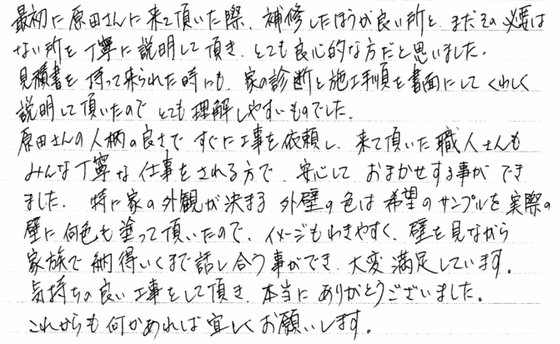 最初に原田さんに来て頂いた際、補修したほうが良い所と、まだその必要は
ない所を丁寧に説明して頂き、とても良心的な方だと思いました。
見積書を持って来られた時にも、家の診断と施工手順を書面にして、くわしく
説明して頂いたので とても理解しやすいものでした。
原田さんの人柄の良さで すぐに工事を依頼し、来て頂いた職人さんも
みんな丁寧な仕事をされる方で、安心して おまかせする事ができ
ました。特に家の外観が決まる 外壁の色は 希望のサンプルを実際の
壁に何色も塗って頂いたので、イメージもわきやすく、壁を見ながら
家族で納得いくまで話し合う事ができ、大変満足しています。
気持ちの良い工事をして頂き、本当にありがとうございました。
これからも何かあれば宜しくお願いします。